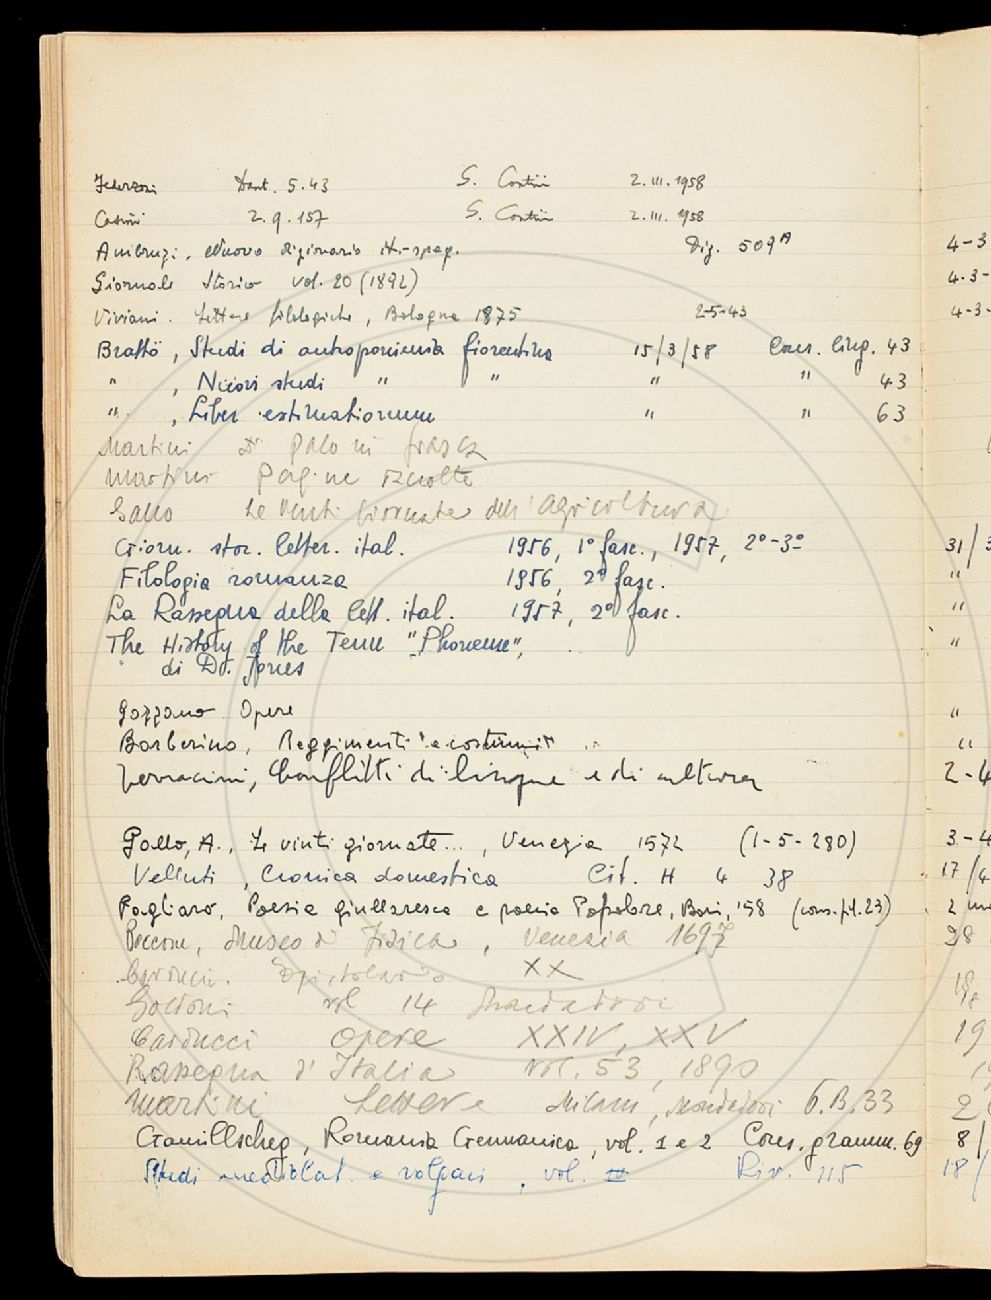 Federzoni Dant. 5.43 G. Contini 2.III.1958
Casini 2.9.157 G. Contini 2.III.1958
Ambruzzi, Nuovo dizionario it.-spag. Diz. 509A 4-3
Giornale Storico vol. 20 (1892) 4-3-
Viviani. Lettere filologiche, Bologna 1875 2-5-43 4-3-
Brattö, Studi di antroponimia fiorentina 15/3/58 Cons. ling. 43
" , Nuovi studi " " " " 43
" , Liber extimationum " " 63
Martini Di palo in frasca
Martini Pagine raccolte
Gallo Le vinti giornate dell'agricoltura
Giorn. stor. letter. ital. 1956, 1° fasc., 1957, 2°-3° 31/3
Filologia romanza 1956, 2° fasc. "
La Rassegna della lett. ital. 1957, 2° fasc. "
The History of the Term "Phoneme", "
di D. Jones
Gozzano Opere "
Barberino, Reggimenti e costumi "
Terracini, Conflitti di lingue e di cultura 2-4
Gallo, A., Le vinti giornate..., Venezia 1572 (1-5-280) 3-4
Velluti, Cronica domestica Cit. H 4 38 17/4
Pagliaro, Poesia giullaresca e poesia popolare, Bari, '58 (cons.fil.23) 2
Boccone, Museo di Fisica, Venezia 1697 28
Carducci. Epistolario XX
Goldoni vol 14 Mondadori 18
Carducci Opere XXIV, XXV 19
Rassegna d'Italia vol. 53, 1890
Martini Lettere Milano, Mondadori 6.B.33
Gamillscheg, Romania Germanica, vol. 1 e 2 Cons. gramm. 69 8/
Studi mediolat. e volgari, vol. Riv. 115 18/